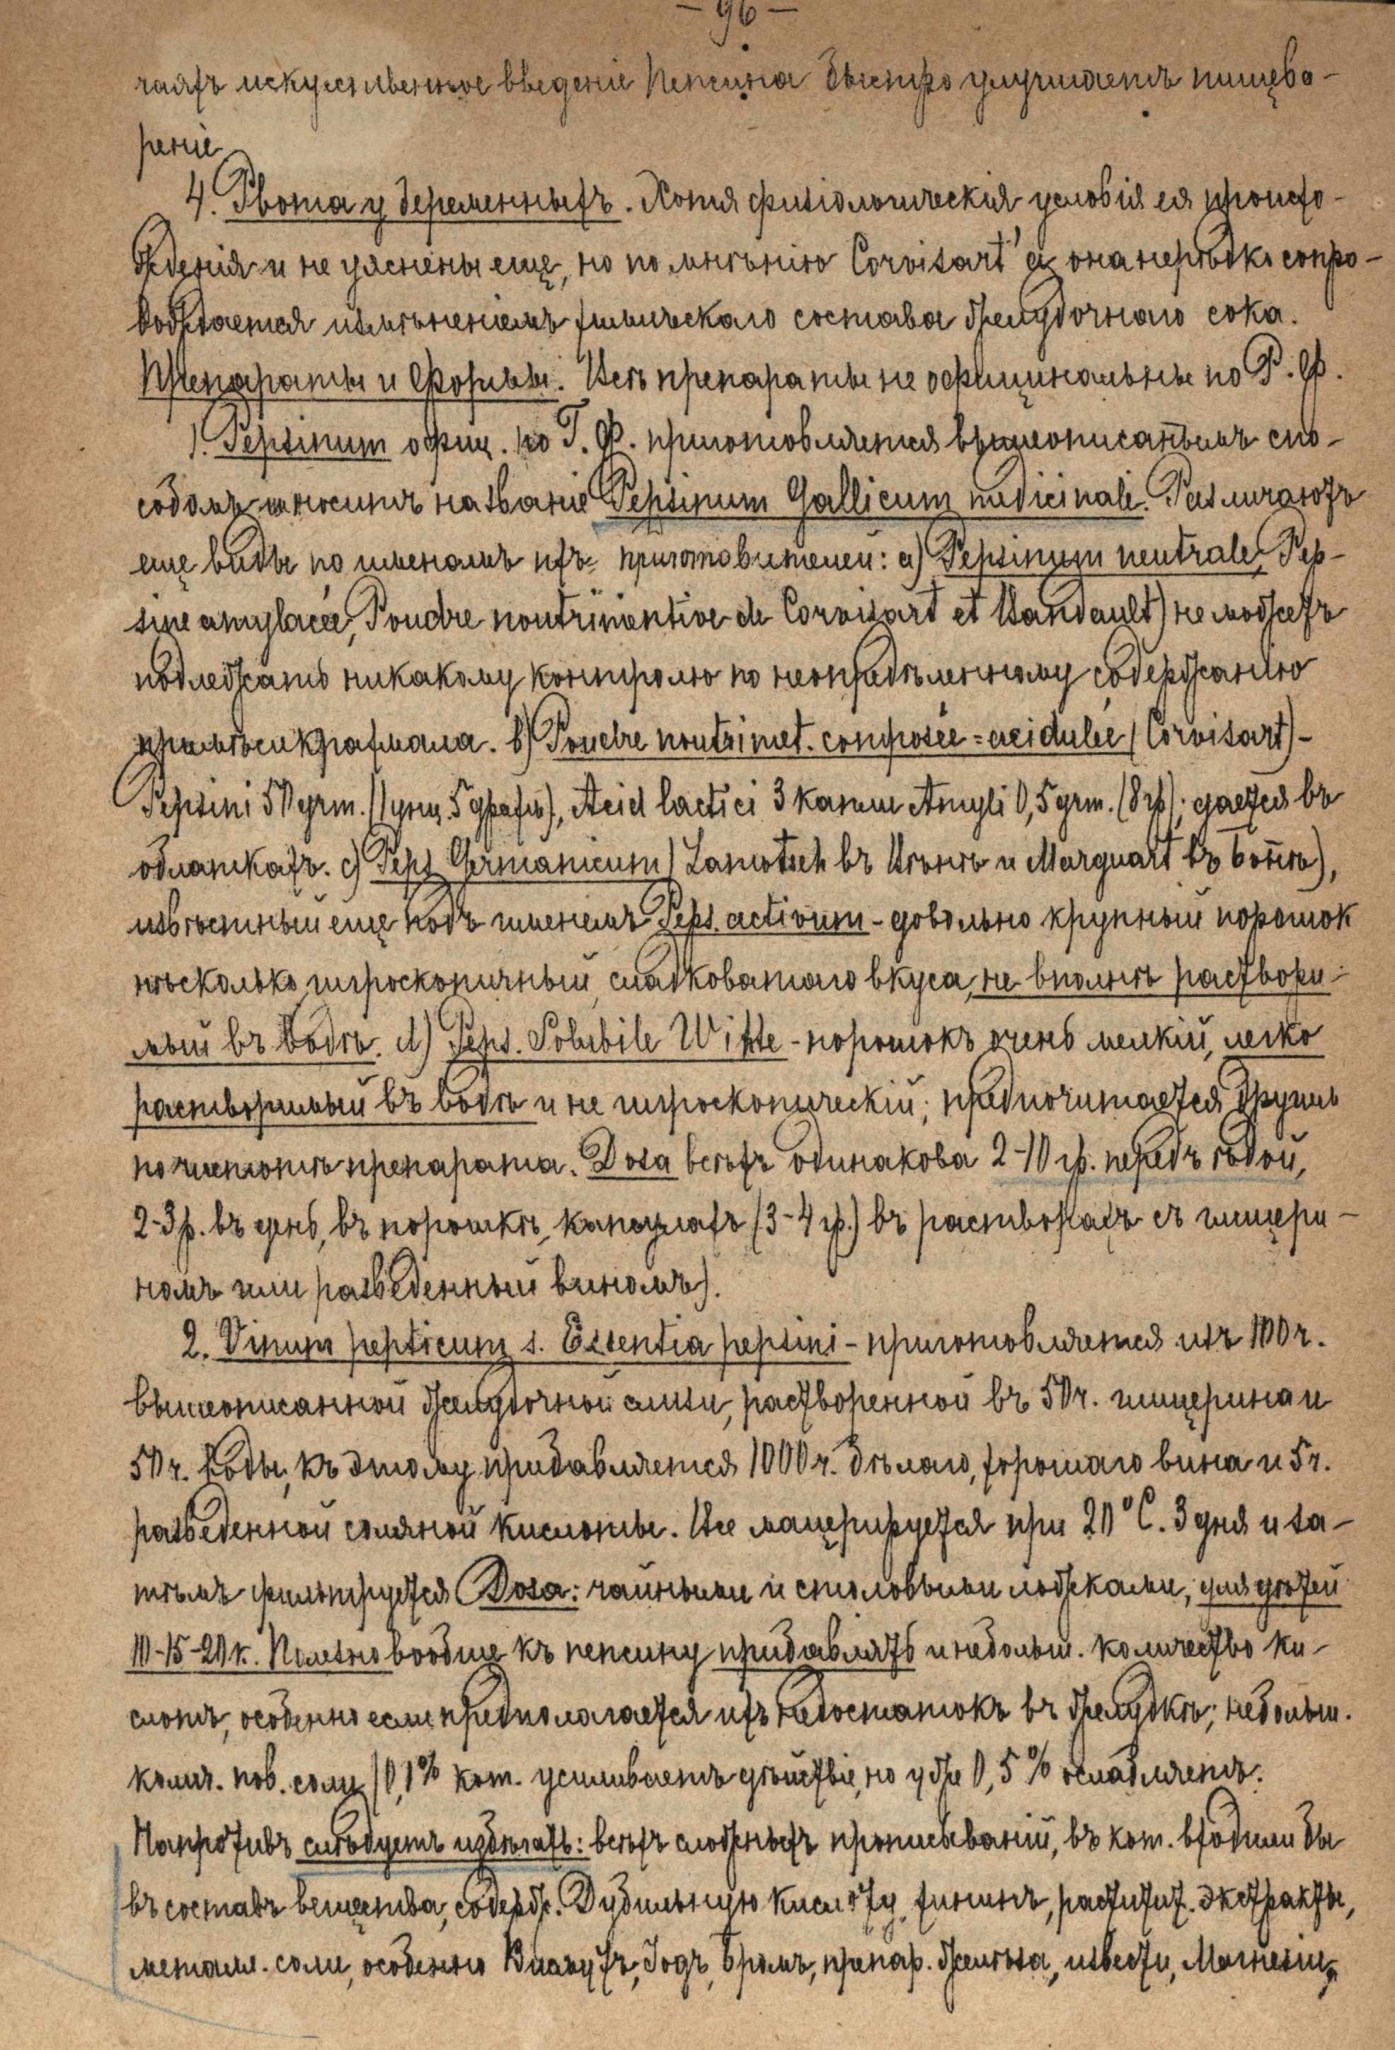 – 96 –
чаяхъ искусственное введеніе Пепсина быстро улучшаетъ пищева-
реніе
4. Рвота у беременныхъ. Хотя физіологическія условія ея происхо-
жденія и не уяснены еще, но по мнѣнію Corvisart'а она нерѣдко сопро-
вождается измѣненіемъ химическаго состава желудочнаго сока.
Препараты и Формы. Всѣ препараты не официнальны по Р. Ф.
1. Pepsinum офиц. по Г. Ф. приготовляется вышеописаннымъ спо-
собомъ и носитъ названіе Pepsinum Gallicum medicinale. Различаютъ
еще виды по именамъ ихъ приготовителей: a) Pepsinum neutrale, Pep-
sine amylacée, Poudre noutrimentive de Corvisart et Baudault) не можетъ
подлежать никакому контролю по неопредѣленному содержанію
примѣси крахмала. b) Poudre noutrimet. composée = acidulée (Corvisart) –
Pepsini 50 grm. (1 унц. 5 драхм), Acid lactici 3 капли Amyli 0,5 grm. (8 гр); дается въ
облаткахъ. c) Peps Germanicum (Lamatsch въ Вѣнѣ и Marquart въ Боннѣ),
извѣстный еще подъ именемъ Peps. activum – довольно крупный порошок
нѣсколько гигроскопичный, сладковатаго вкуса, не вполнѣ раствори-
мый въ водѣ. d) Peps. Solubile Witte – порошокъ очень мелкій, легко
растворимый въ водѣ и не гигроскопическій; предпочитается другимъ
по чистотѣ препарата. Dosa всѣхъ одинакова 2–10 гр. передъ ѣдой,
2–3 р. въ день, въ порошкѣ, капсулахъ (3–4 гр.) въ растворахъ съ глицери-
номъ или разведенный виномъ).
2. Vinum pepticum s. Essentia pepsini – приготовляется изъ 100 ч.
вышеописанной желудочной слизи, растворенной въ 50 ч. глицерина и
50 ч. воды, къ этому прибавляется 1000 ч. бѣлаго, хорошаго вина и 5 ч.
разведенной соляной кислоты. Все мацерируется при 20°C. 3 дня и за-
тѣмъ фильтруется Dosa: чайными и столовыми ложками, для дѣтей
10–15–20 к. Полезно вообще къ пепсину прибавлять и небольш. количество ки-
слотъ, особенно если предполагается ихъ недостатокъ въ желудкѣ; небольш.
колич. пов. соли (0,1% кот. усиливаетъ дѣйствіе, но уже 0,5% ослабляетъ.
Напротивъ слѣдуетъ избѣгать: всѣхъ сложныхъ прописываній, въ кот. входили бы
въ составъ вещества, содерж. Дубильную кислоту, хининъ, растител. экстракты,
металл. соли, особенно Висмутъ, Іодъ, Бромъ, препар. желѣза, извести, Магнезіи,